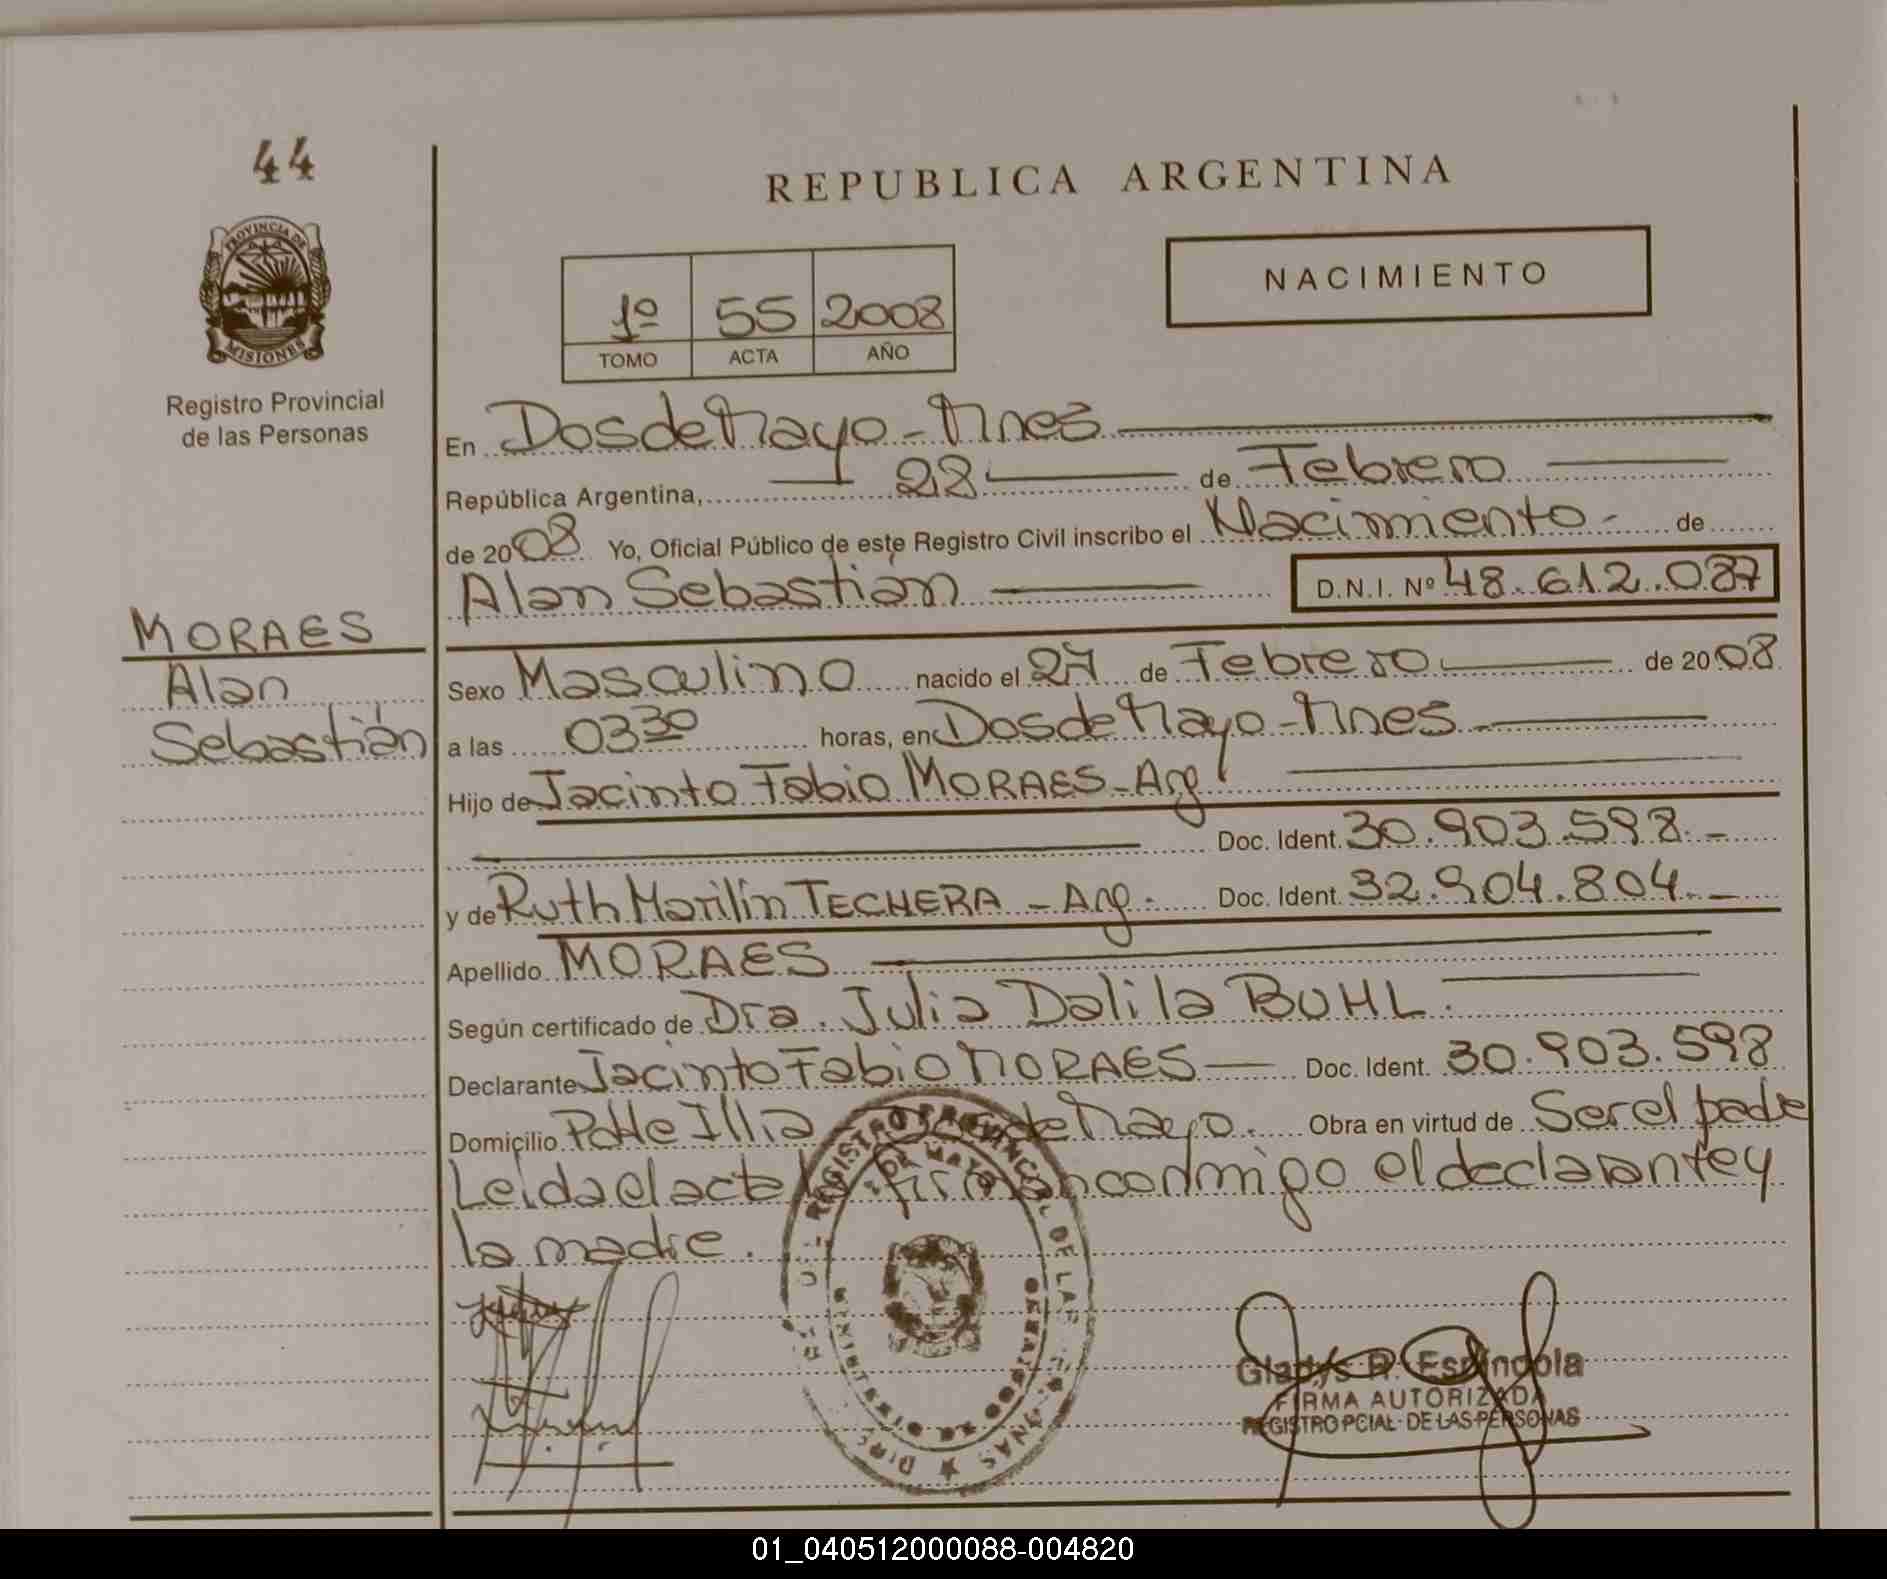 44
REPUBLICA ARGENTINA
PROVINCIA DE
MISIONES
Registro Provincial
de las Personas
1º 55 2008
TOMO ACTA AÑO
NACIMIENTO
En Dos de Mayo - Mnes
República Argentina, 28 de Febrero
de 2008 Yo, Oficial Público de este Registro Civil inscribo el Nacimiento - de
Alan Sebastián D.N.I. Nº 48.612.087
MORAES
Alan
Sebastián
Sexo Masculino nacido el 27 de Febrero de 2008
a las 03 30 horas, en Dos de Mayo - Mnes
Hijo de Jacinto Fabio MORAES - Arg
Doc. Ident. 30.903.598. -
y de Ruth Marilín TECHERA - Arg. Doc. Ident. 32.904.804. -
Apellido MORAES
Según certificado de Dra. Julia Dalila BUHL.
Declarante Jacinto Fabio MORAES — Doc. Ident. 30.903.598
Domicilio Illia de Mayo. Obra en virtud de Ser el padre
Leida el acta firman conmigo el declarante y
la madre.
REGISTRO PROVINCIAL DE LAS PERSONAS
DE MAYO
Gladys R. Espíndola
FIRMA AUTORIZADA
REGISTRO PCIAL. DE LAS PERSONAS
01_040512000088-004820